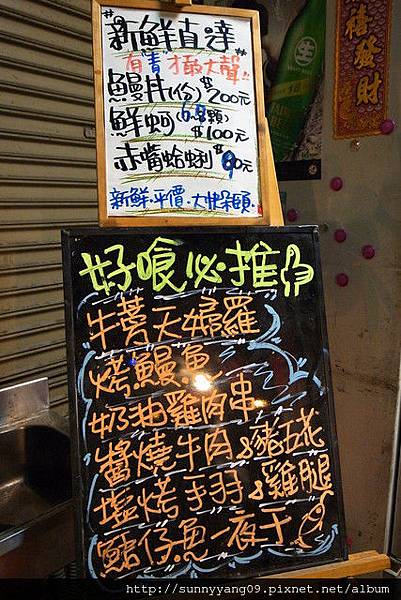 新鮮直達
有"青"才敢大聲!!
鰻片(份)$200元
鮮蚵(6-8顆)$100元
赤嘴蛤蜊$90元
新鮮.平價.大快朵頤.
好喰必推
牛蒡天婦羅
烤鰻魚
奶油雞肉串
醬燒牛肉&豬五花
塩烤手羽&雞腿
鯖仔魚一夜干
禧發財
生
http://sunnyyang09.pixnet.net/album